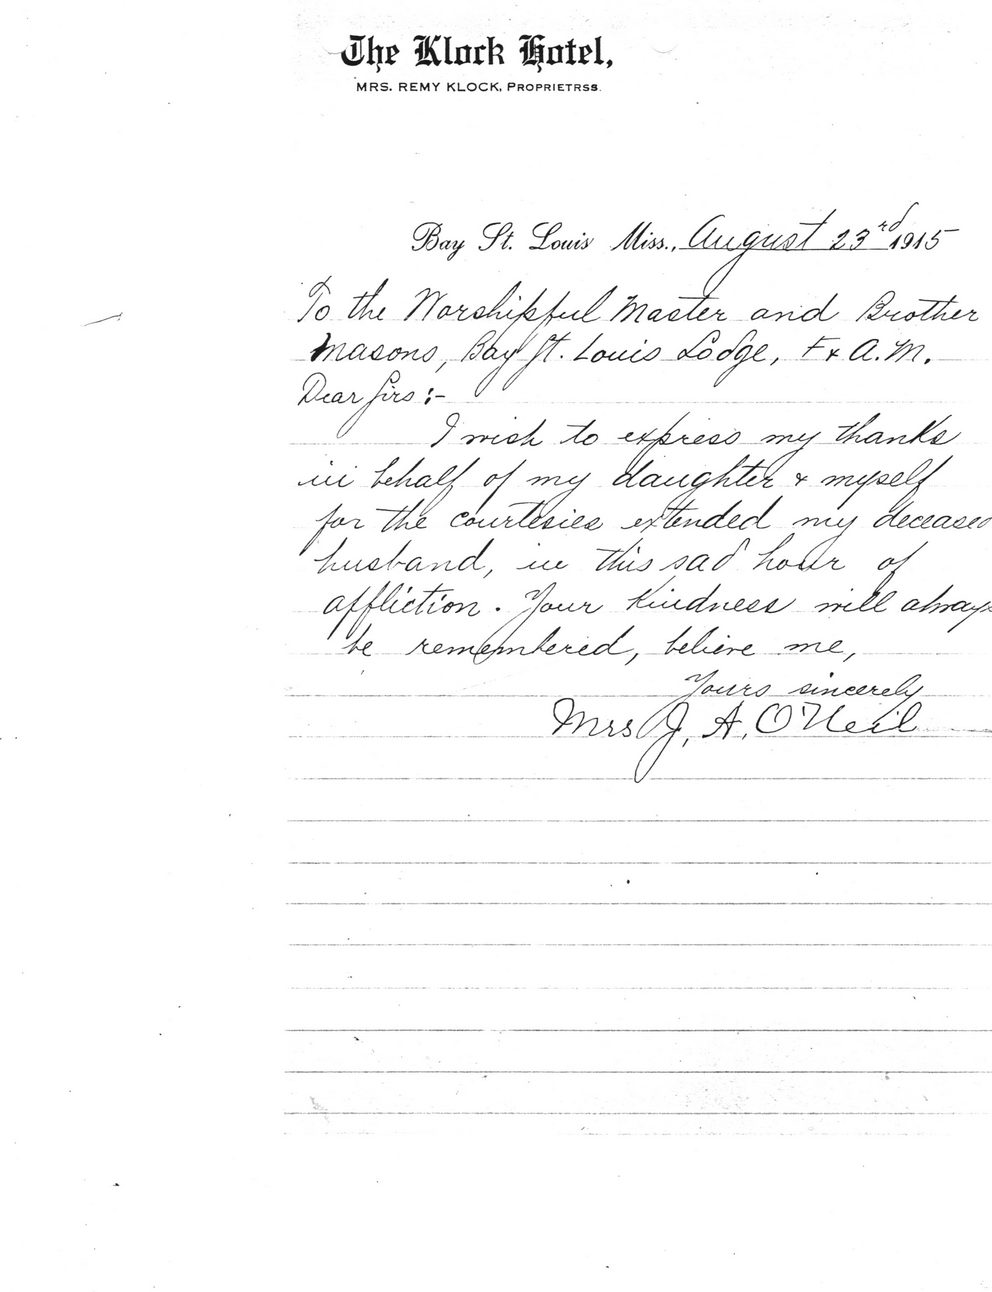 The Klock Hotel,
MRS. REMY KLOCK, PROPRIETRSS.
Bay St. Louis Miss., August 23rd 1915
To the Worshipful Master and Brother
Masons, Bay St. Louis Lodge, F & A.M.
Dear Sirs :-
I wish to express my thanks
in behalf of my daughter & myself
for the courtesies extended my deceased
husband, in this sad hour of
affliction. Your kindness will always
be remembered, believe me,
Yours sincerely
Mrs J. A. O'Neil